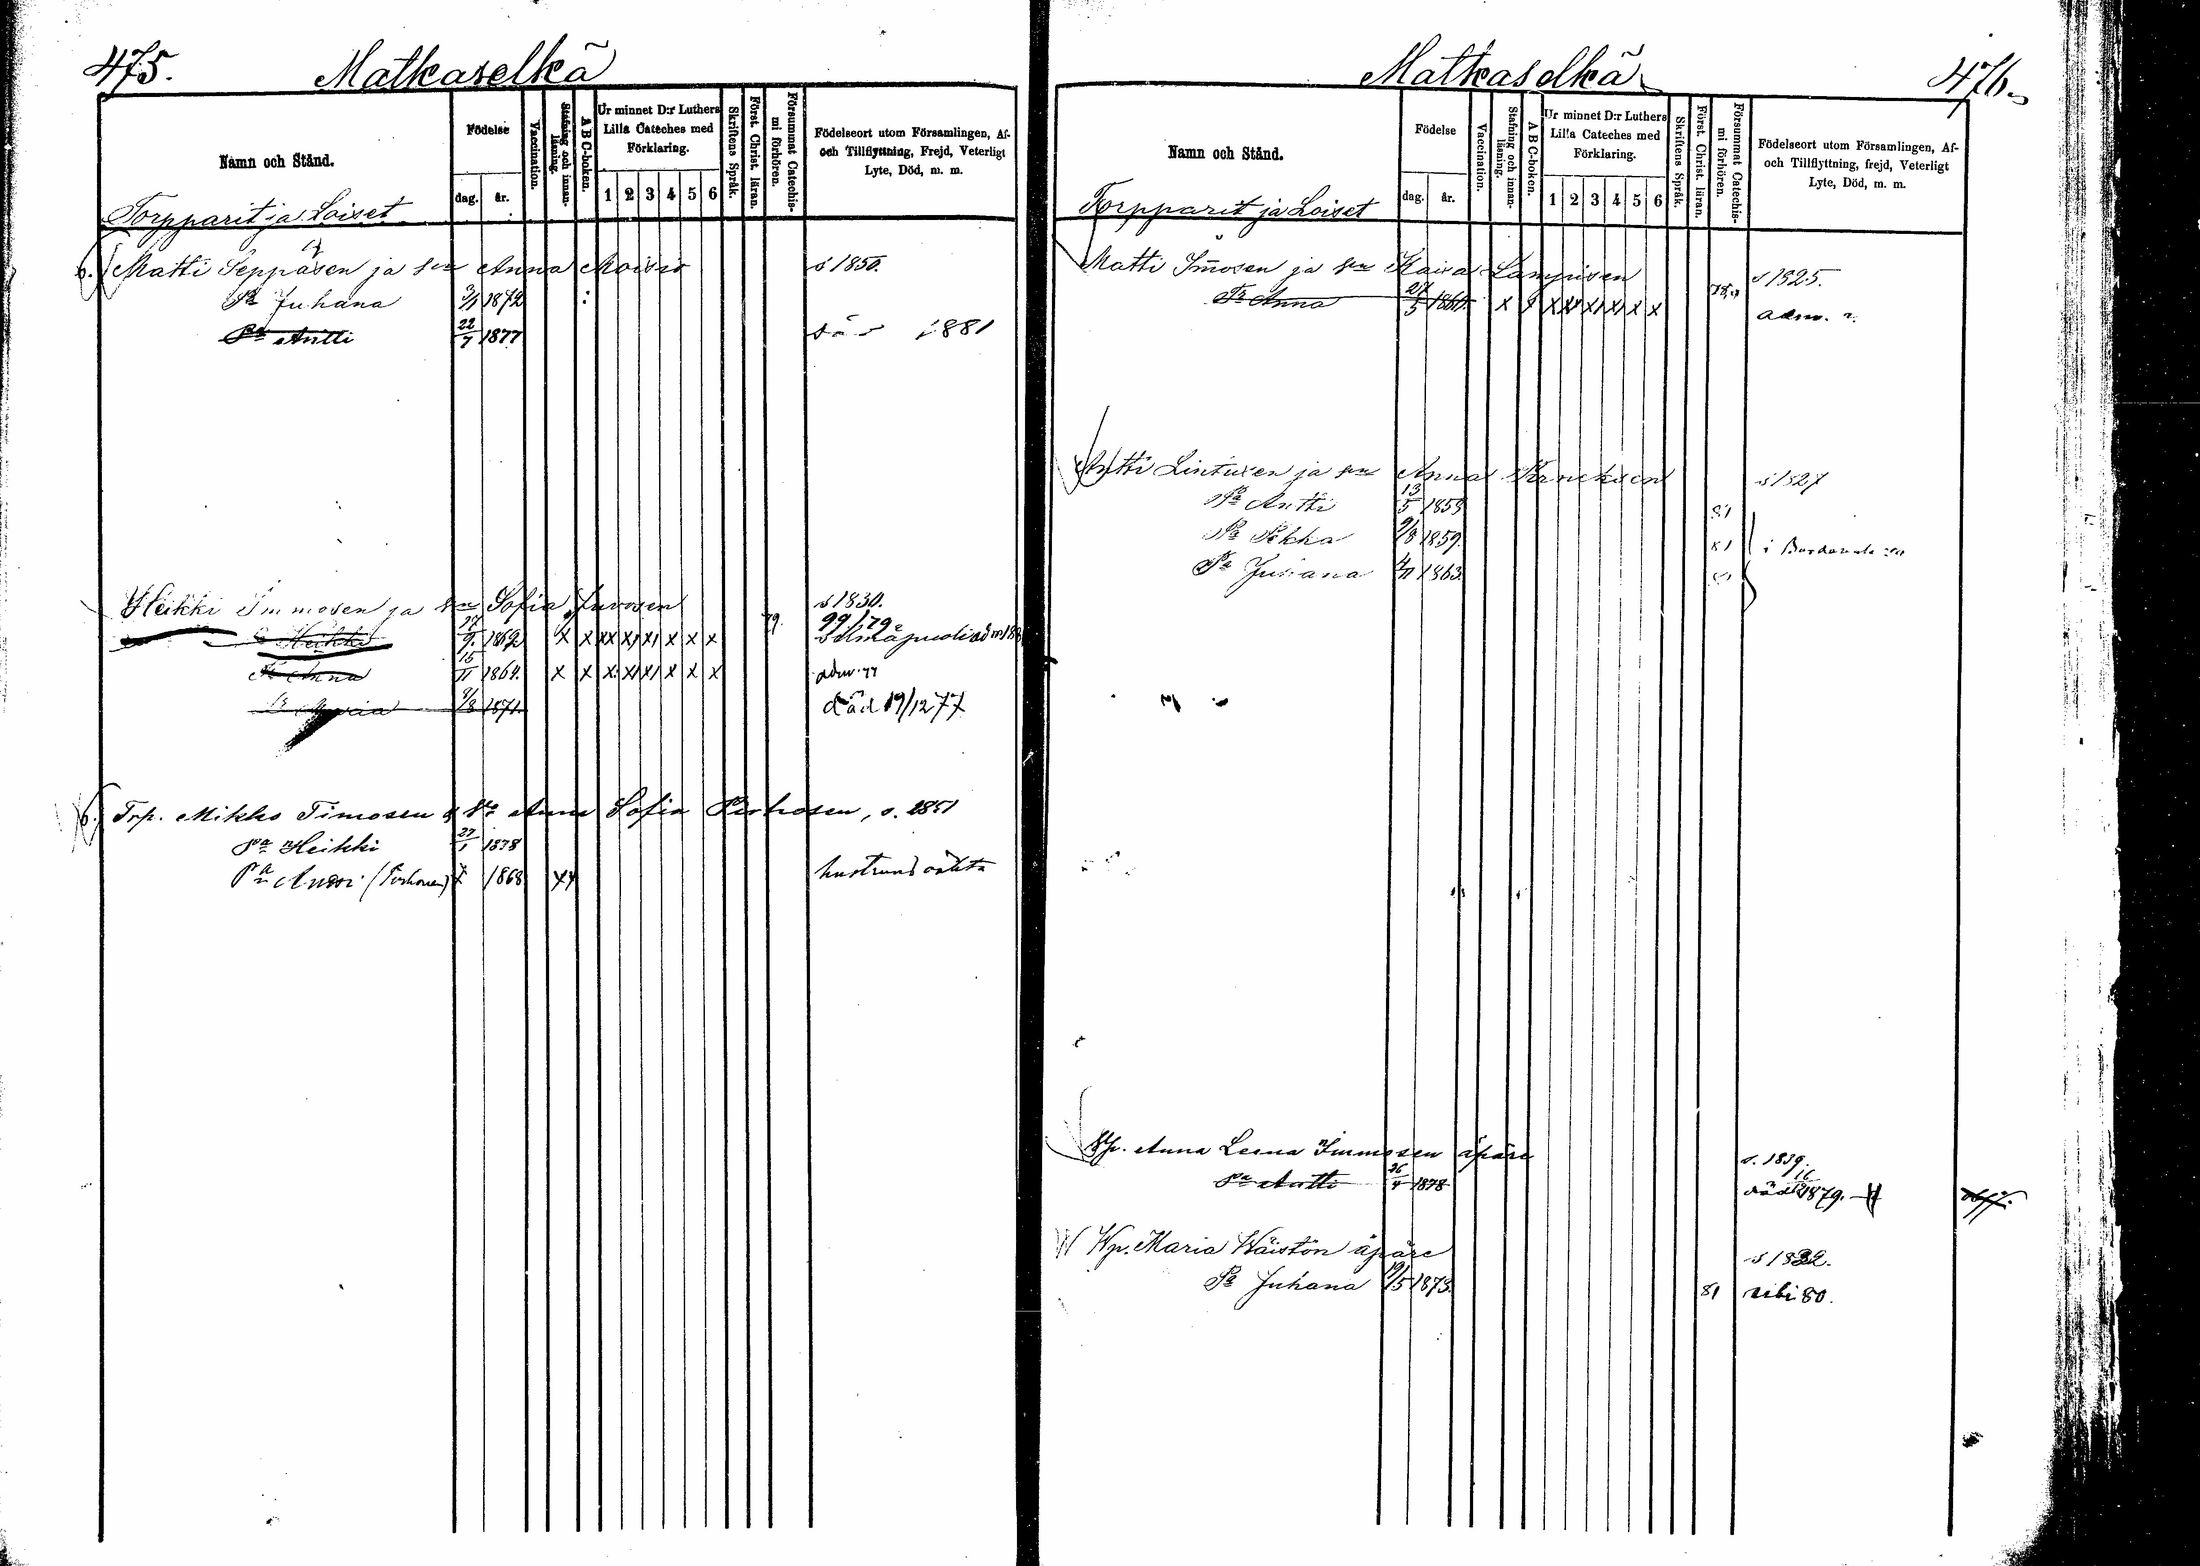 475.
Matkaselkä
Namn och Stånd.
Födelse
dag.
år.
Vaccination.
Stafning och innan-läsning.
A B C-boken.
Ur minnet D:r Luthers Lilla Cateches med Förklaring.
1 2 3 4 5 6
Skriftens Språk.
Först. Christ. läran.
Försummat Catechismi förhören.
Födelseort utom Församlingen, Af- och Tillflyttning, Frejd, Veterligt Lyte, Död, m. m.
Torpparit ja Loiset
b. Matti Seppäsen ja sen Anna s 1850.
Pa Juhana 3/1 1872
Pa Antti 22/7 1877 1881
Heikki Immosen ja sen Sofia Juvosen s 1830.
Heikki 27/9 1862 x x xx x1 x1 x x x 79. 99/79
Anna 15/11 1864. x x x x1 x1 x x x adm. 77
Maria 4/8 1871. död 19/12 77
b. Trp. Mikko Timosen & Sa Anna Sofia s. 1851
Pa Heikki 27/1 1878
Pa Anssi 1868 xx hustruns oäkta
Matkaselkä
476.
Namn och Stånd.
Födelse
dag.
år.
Vaccination.
Stafning och innan-läsning.
A B C-boken.
Ur minnet D:r Luthers Lilla Cateches med Förklaring.
1 2 3 4 5 6
Skriftens Språk.
Först. Christ. läran.
Försummat Catechismi förhören.
Födelseort utom Församlingen, Af- och Tillflyttning, frejd, Veterligt Lyte, Död, m. m.
Torpparit ja Loiset
Matti Im̄osen ja sen Kaisa Lampisen s 1825.
Tr Anna 27/5 x x x x x adm.
Antti Lintusen ja sen Anna s 1827
Pa Antti 13/5 1853 81
Pa Pekka 9/8 1859. 81 i
Pa Juhana 4/11 1863.
Anna Leena Immosen äpäre s. 1839
Pa Antti 26/4 1878 död 1879.
Wp. Maria Wäistön äpäre s 1832.
Pa Juhana 19/5 1873. 81 sibi 80.